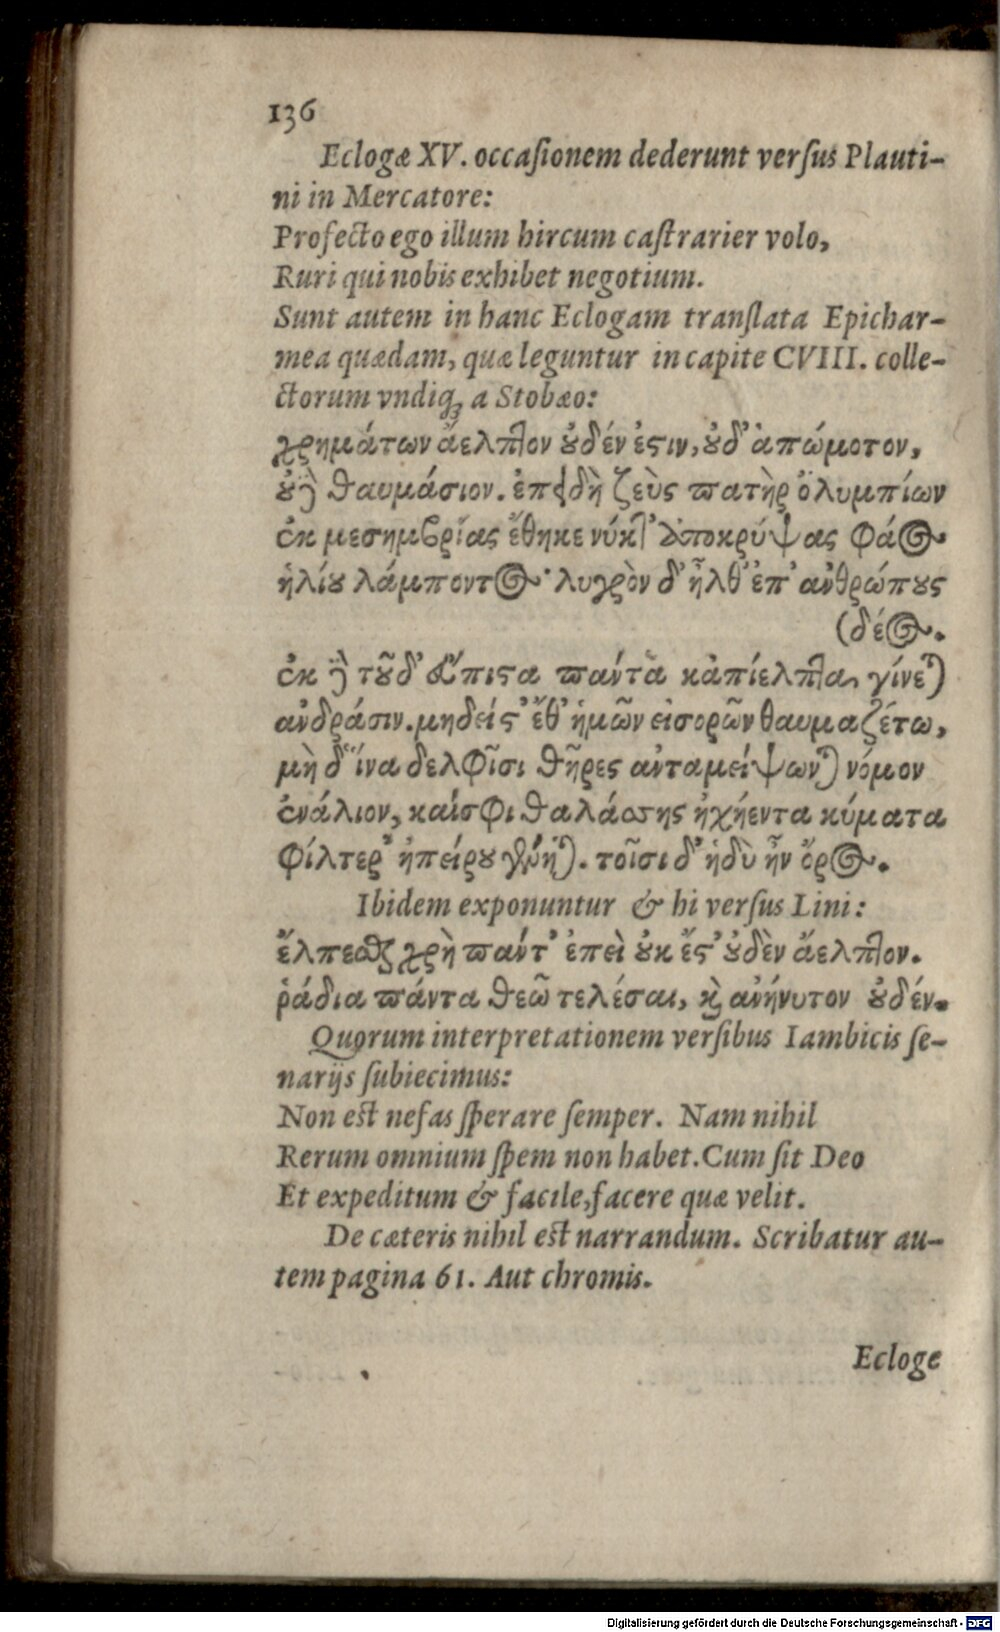 136
Eclogæ XV. occaſionem dederunt verſus Plauti-
ni in Mercatore:
Profecto ego illum hircum caſtrarier volo,
Ruri qui nobis exhibet negotium.
Sunt autem in hanc Eclogam tranſlata Epichar-
mea quædam, quæ leguntur in capite CVIII. colle-
ctorum vndiq; a Stobæo:
χρημάτων ἄελπτον ȣ̓δέν ἐϛιν, ȣ̓δ' ἀπώμοτον,
ȣ̓δὲ θαυμάσιον. ἐπειδὴ ζεὺς ϖατὴρ ὀλυμπίων
ἐκ μεσημβρίας ἔθηκε νύκτ' ἀποκρύψας φάος
ἡλίȣ λάμποντος· λυγρὸν δ' ἦλθ' ἐπ' ανθρώπȣς
(δέος.
ἐκ δὲ τȣ͂δ' ἄπιϛα ϖαντὰ κἀπίελπτα, γίνεται
ανδράσιν. μηδείς' ἔθ' ἡμῶν εἰσορῶν θαυμαζέτω,
μὴ δ' ἵνα δελφῖσι θῆρες ανταμείψωνται νόμον
ἐνάλιον, καίσφι θαλάσσης ἠχήεντα κύματα
φίλτερ' ἠπείρȣ γένηται. τοῖσι δ' ἡδὺ ἦν ὄρος.
Ibidem exponuntur & hi verſus Lini:
ἔλπεσθαι χρὴ ϖαντ' ἐπεὶ ȣ̓κ ἔϛ' ȣ̓δὲν ἄελπτον.
ῥάδια ϖάντα θεῶ τελέσαι, ϗ ανήνυτον ȣ̓δέν.
Quorum interpretationem verſibus Iambicis ſe-
narijs ſubiecimus:
Non est nefas ſperare ſemper. Nam nihil
Rerum omnium ſpem non habet. Cum ſit Deo
Et expeditum & facile, facere quæ velit.
De cæteris nihil est narrandum. Scribatur au-
tem pagina 61. Aut chromis.
Ecloge
Digitalisierung gefördert durch die Deutsche Forschungsgemeinschaft - DFG